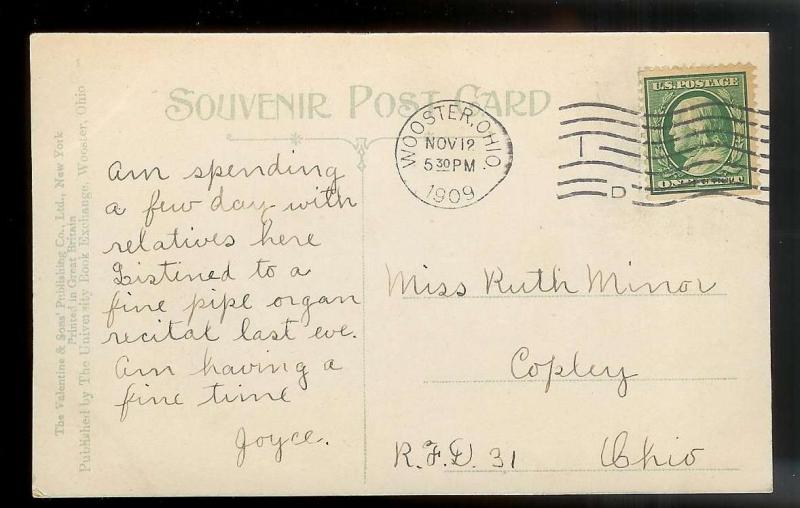 SOUVENIR POST CARD
U.S. POSTAGE
ONE CENT
WOOSTER, OHIO.
NOV 12
5 30 PM
1909
1
D
Am spending
a few day with
relatives here
Listined to a
fine pipe organ
recital last eve.
Am having a
fine time
Joyce.
Miss Ruth Minor
Copley
R.F.D. 31 Ohio
The Valentine & Sons' Publishing Co., Ltd., New York
Printed in Great Britain
Published by The University Book Exchange, Wooster, Ohio